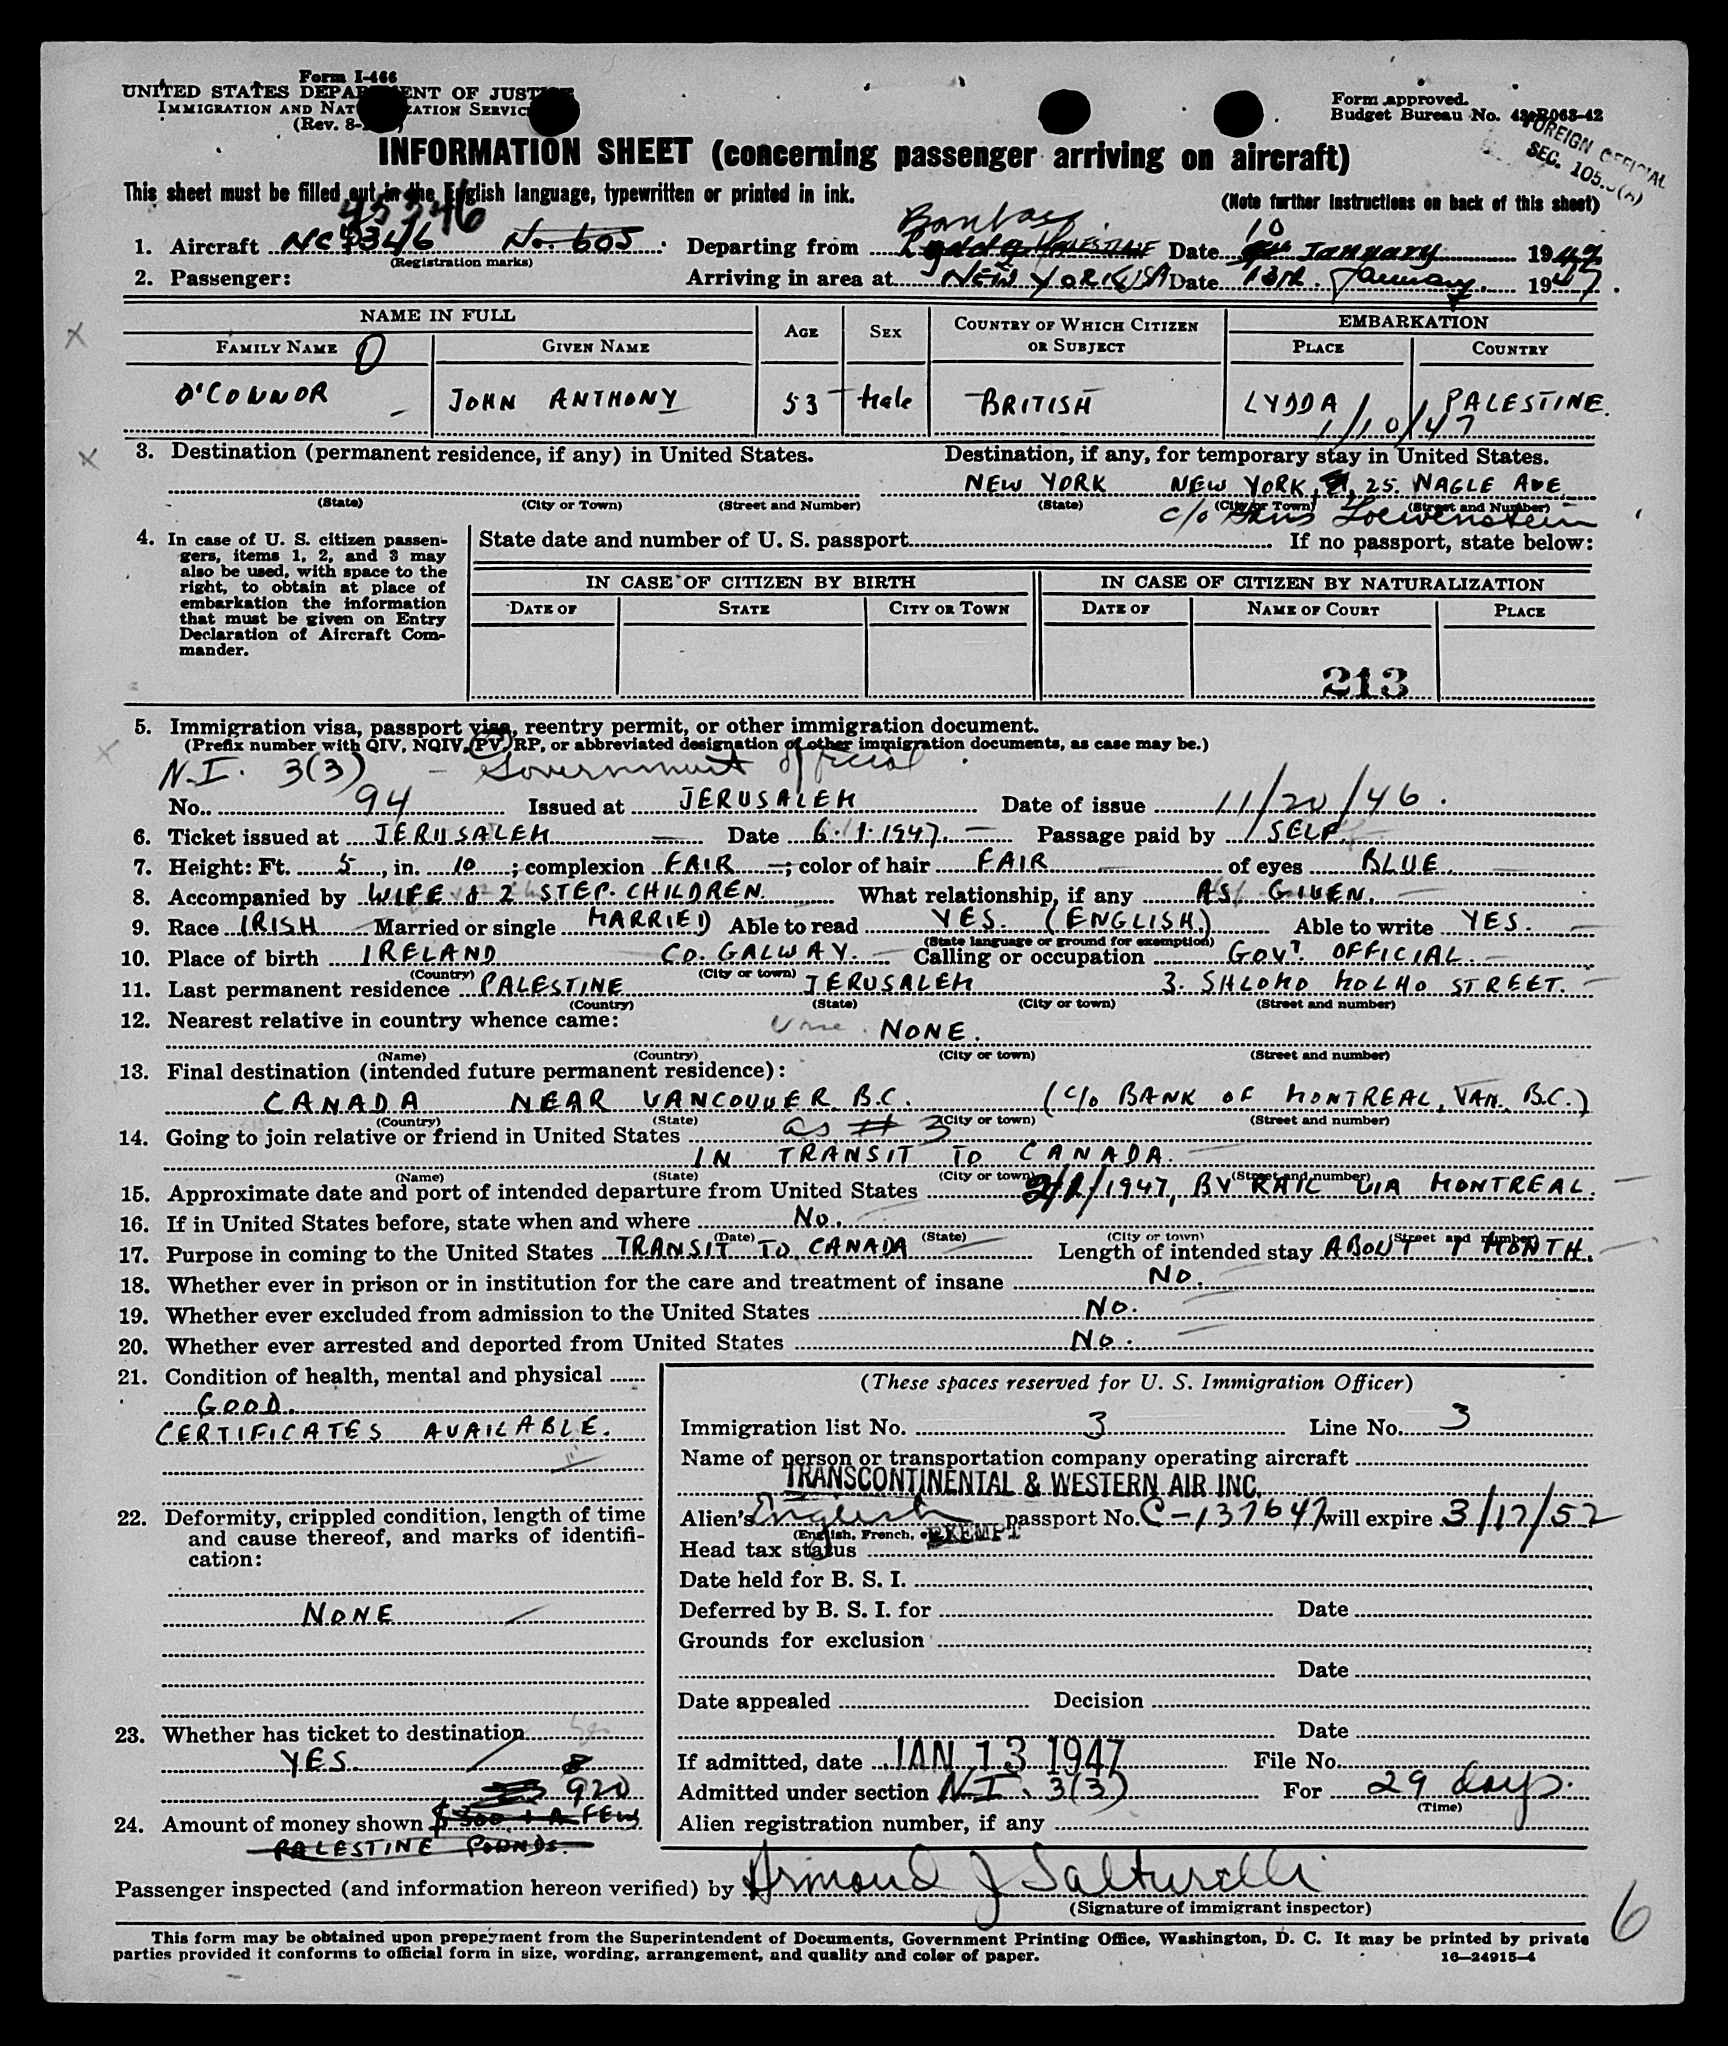 Form I-466
UNITED STATES DEPARTMENT OF JUSTICE
IMMIGRATION AND NATURALIZATION SERVICE
(Rev. 8-
Form approved.
Budget Bureau No. 43-R063-42
FOREIGN OFFICIAL
SEC. 105.3(A)
INFORMATION SHEET (concerning passenger arriving on aircraft)
This sheet must be filled out in the English language, typewritten or printed in ink.
(Note further instructions on back of this sheet)
45346
Bombay
10
1. Aircraft NC 346 No. 605 Departing from Lydda PALESTINE Date January 1947
(Registration marks)
2. Passenger: Arriving in area at NEW YORK USA Date 13th January 1947.
NAME IN FULL
AGE SEX COUNTRY OF WHICH CITIZEN OR SUBJECT EMBARKATION
FAMILY NAME O GIVEN NAME PLACE COUNTRY
O'CONNOR JOHN ANTHONY 53 Male BRITISH LYDDA PALESTINE.
1/10/47
3. Destination (permanent residence, if any) in United States. Destination, if any, for temporary stay in United States.
NEW YORK NEW YORK, 25. NAGLE AVE.
(State) (City or Town) (Street and Number) (State) (City or Town) (Street and Number)
c/o Hans Loewenstein
4. In case of U. S. citizen passengers, items 1, 2, and 3 may also be used, with space to the right, to obtain at place of embarkation the information that must be given on Entry Declaration of Aircraft Commander.
State date and number of U. S. passport If no passport, state below:
IN CASE OF CITIZEN BY BIRTH IN CASE OF CITIZEN BY NATURALIZATION
DATE OF STATE CITY OR TOWN DATE OF NAME OF COURT PLACE
213
5. Immigration visa, passport visa, reentry permit, or other immigration document.
(Prefix number with QIV, NQIV, PV, RP, or abbreviated designation of other immigration documents, as case may be.)
N.I. 3(3) - Government official.
No.. 94 Issued at JERUSALEM Date of issue 11/20/46.
6. Ticket issued at JERUSALEM Date 6.1.1947. Passage paid by SELF.
7. Height: Ft. 5, in. 10; complexion FAIR; color of hair FAIR of eyes BLUE.
8. Accompanied by WIFE & 2 STEP-CHILDREN. What relationship, if any AS GIVEN.
9. Race IRISH Married or single MARRIED Able to read YES. (ENGLISH.) Able to write YES.
(State language or ground for exemption)
10. Place of birth IRELAND CO. GALWAY. Calling or occupation GOVT. OFFICIAL.
(Country) (City or town)
11. Last permanent residence PALESTINE JERUSALEM 3. SHLOMO MOLHO STREET.
(Country) (State) (City or town) (Street and number)
12. Nearest relative in country whence came:
NONE.
(Name) (Country) (City or town) (Street and number)
13. Final destination (intended future permanent residence):
CANADA NEAR VANCOUVER B.C. (C/O BANK OF MONTREAL, VAN. B.C.)
(Country) (State) (City or town) (Street and number)
14. Going to join relative or friend in United States as # 3
IN TRANSIT TO CANADA.
(Name) (State) (City or town) (Street and number)
15. Approximate date and port of intended departure from United States 2/2/1947, BY RAIL VIA MONTREAL.
16. If in United States before, state when and where No.
(Date) (State) (City or town) (Street and number)
17. Purpose in coming to the United States TRANSIT TO CANADA Length of intended stay ABOUT 1 MONTH.
18. Whether ever in prison or in institution for the care and treatment of insane No.
19. Whether ever excluded from admission to the United States No.
20. Whether ever arrested and deported from United States No.
21. Condition of health, mental and physical
GOOD.
CERTIFICATES AVAILABLE.
22. Deformity, crippled condition, length of time and cause thereof, and marks of identification:
NONE
23. Whether has ticket to destination
YES.
920
24. Amount of money shown $ 300 + A FEW
PALESTINE POUNDS.
(These spaces reserved for U. S. Immigration Officer)
Immigration list No. 3 Line No. 3
Name of person or transportation company operating aircraft
TRANSCONTINENTAL & WESTERN AIR INC.
Alien's English passport No. C-137647 will expire 3/17/52
(English, French, etc.)
Head tax status EXEMPT
Date held for B. S. I.
Deferred by B. S. I. for Date
Grounds for exclusion
Date
Date appealed Decision
Date
If admitted, date JAN 13 1947 File No.
Admitted under section N.I. 3(3) For 29 days.
(Time)
Alien registration number, if any
Passenger inspected (and information hereon verified) by Armond J Salturelli
(Signature of immigrant inspector)
6
This form may be obtained upon prepayment from the Superintendent of Documents, Government Printing Office, Washington, D. C. It may be printed by private
parties provided it conforms to official form in size, wording, arrangement, and quality and color of paper.
16—24915-4